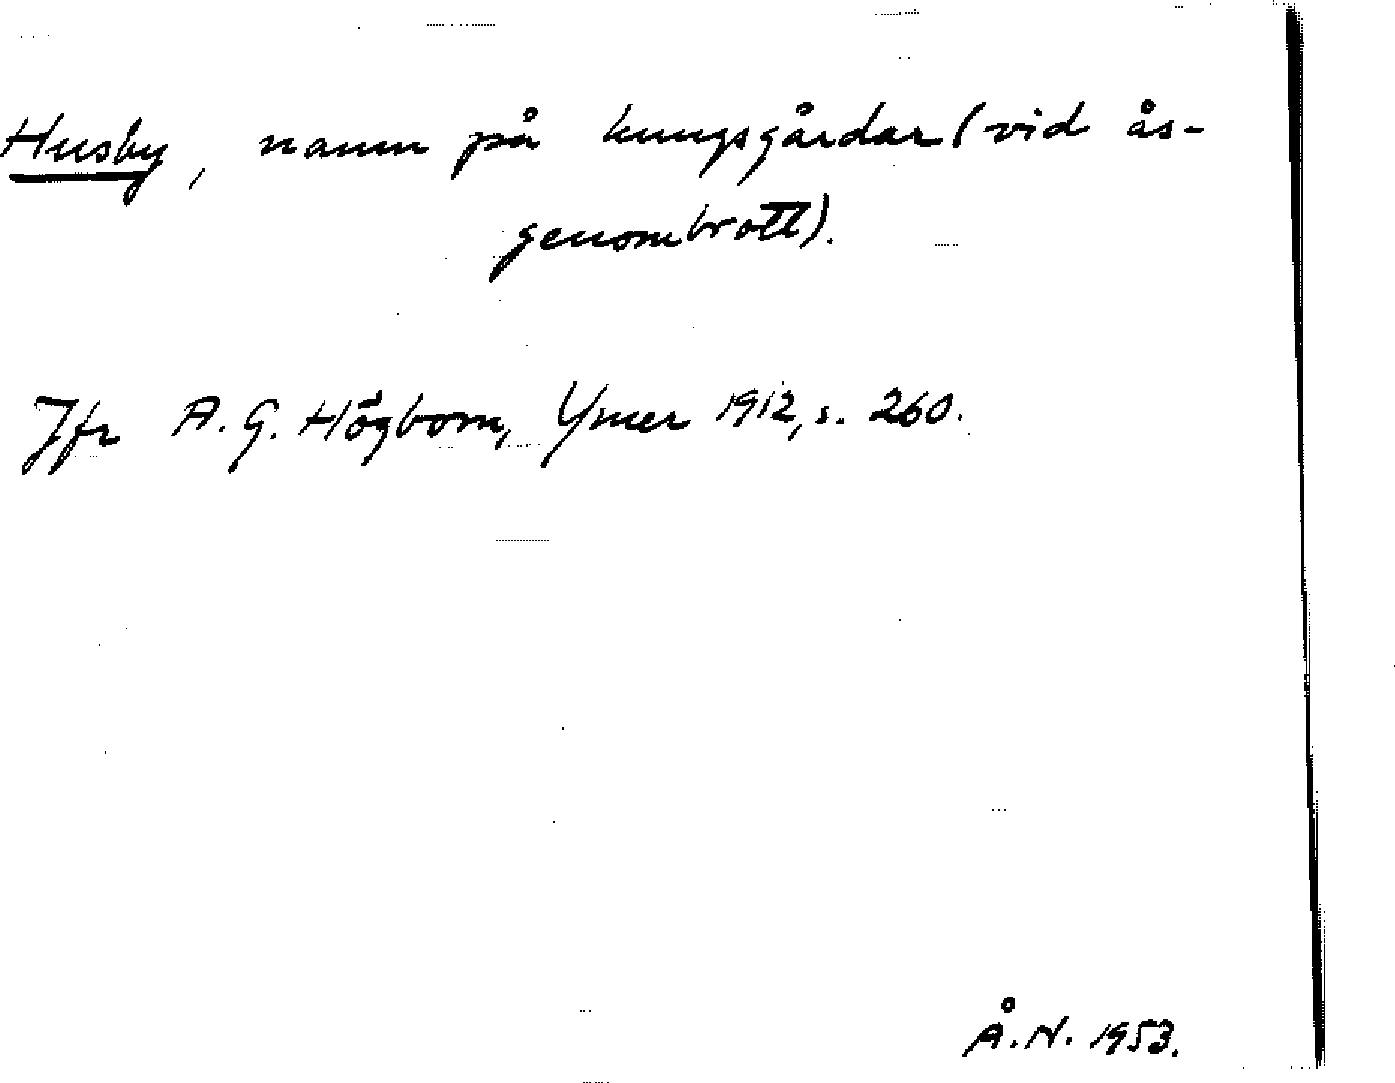 Husby, namn på kungsgårdar (vid ås-
genombrott).
Jfr A. G. Högbom, Ymer 1912, s. 260.
Å. N. 1953.